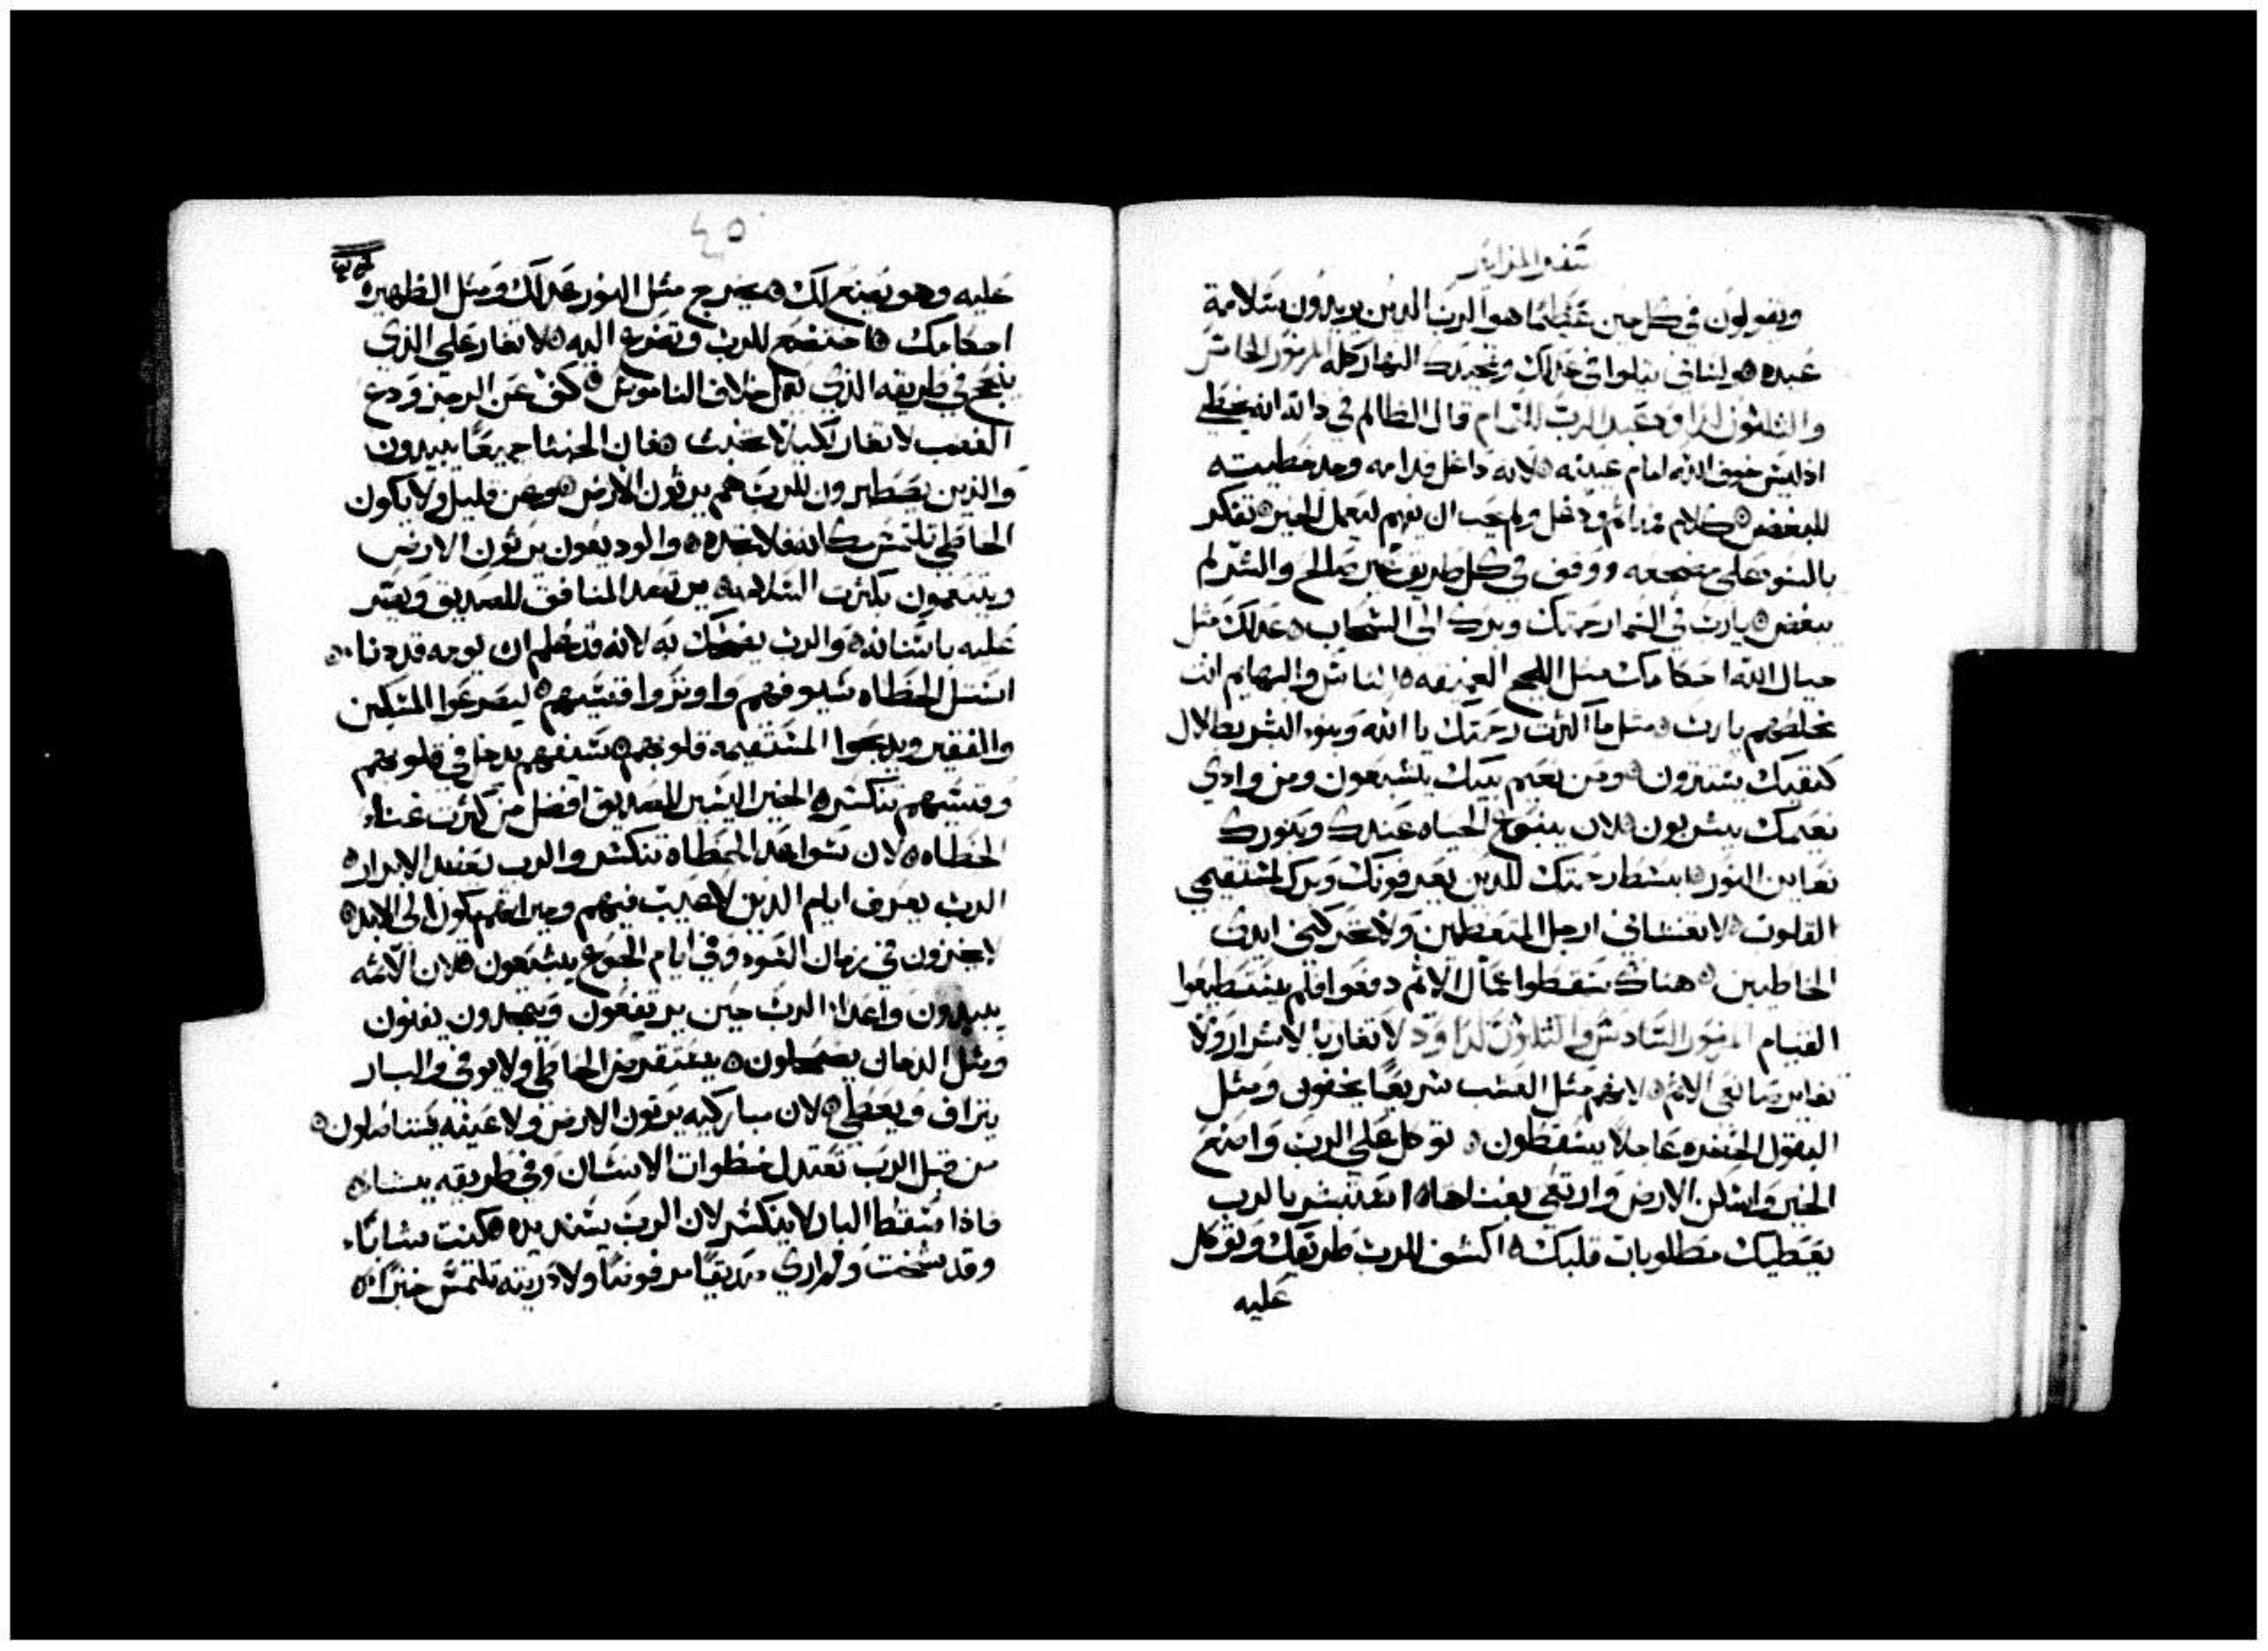 سفر المزامير
ويقولون في كل حين عظيما هو الرب الدين يريدون سلامة
عبده ولساني يتلوا في عدلك وتمجيدك النهار كله المزمور الخامس
والثلثون لداود عبد الرب التمام قال الظالم في داته انه يخطي
اذ ليس خوف الله امام عينيه لانه داغل قدامه وجد خطيته
للبغض كلام فمه اثم ودغل ولم يحب ان يفهم ليعمل الخير تفكر
بالسوء على مضجعه ووقف في كل طريق غير صالح والشر لم
يبغض يارب في السما رحمتك وبرك الى السحاب عدلك مثل
جبال الله احكامك مثل اللجج العميقه الناس والبهايم انت
تخلصهم يارب مثل ما اكثرت رحمتك يا الله وبنوء البشر بطلال
كنفيك يستترون ومن نعيم بيتك يشبعون ومن وادي
نعيمك يشربون لان ينبوع الحياه عندك وبنورك
نعاين النور ابسط رحمتك للدين يعرفونك وبرك لمستقيمي
القلوب لا تغشاني ارجل المتعظمين ولا تحركني ايدي
الخاطيين هناك سقطوا عمال الاثم دفعوا فلم يستطيعوا
القيام المزمور السادس والثلثون لداود لا تغار بالاشرار ولا
تغاير صانعي الاثم لانهم مثل العشب سريعا يجفون ومثل
البقول الخضره عاجلا يسقطون توكل على الرب واصنع
الخير واسكن الارض وارتعي بغناها استبشر بالرب
يعطيك مطلوبات قلبك اكشف للرب طريقك وتوكل
عليه
٤٥
عليه وهو يصنع لك يخرج مثل النور عدلك ومثل الظهيره
احكامك اخضع للرب وتضرع اليه لا تغار على الذي
ينجح في طريقه الذي يعمل خلاف الناموس كف عن الرجز ودع
الغضب لا تغار لكيلا تخبث فان الخبثا جميعا يبيدون
والذين يصطبرون للرب هم يرثون الارض وعن قليل ولا يكون
الخاطي تلتمس مكانه فلا تجده والوديعون يرثون الارض
ويتنعمون بكثرت السلامه يرتصد المنافق للصديق ويصر
عليه باسنانه والرب يضحك به لانه قد علم ان يومه قد دنا
استل الخطاه سيوفهم واوتروا قسيهم ليصرعوا المسكين
والفقير ويذبحوا المستقيمه قلوبهم سيفهم يدخل في قلوبهم
وقسيهم تنكسر الخير اليسير للصديق افضل من كثرت غناء
الخطاه لان سواعد الخطاة تنكسر والرب يعضد الابرار
الرب يعرف ايام الدين لا عيب فيهم وميراثهم يكون الى الابد
لا يخزون في زمان السوء وفي ايام الجوع يشبعون لان الاثمه
يبيدون واعداء الرب حين يرتفعون ويتمجدون يفنون
ومثل الدخان يضمحلون يستقرض الخاطي ولا يوفي والبار
يتراف ويعطي لان مباركيه يرثون الارض ولاعنيه يستاصلون
من قبل الرب تعتدل خطوات الانسان وفي طريقه يشاء
فاذا سقط البار لا ينكسر لان الرب يسند يده كنت شابا
وقد شخت ولم اري صديقا مرفوضا ولا ذريته تلتمس خبزا